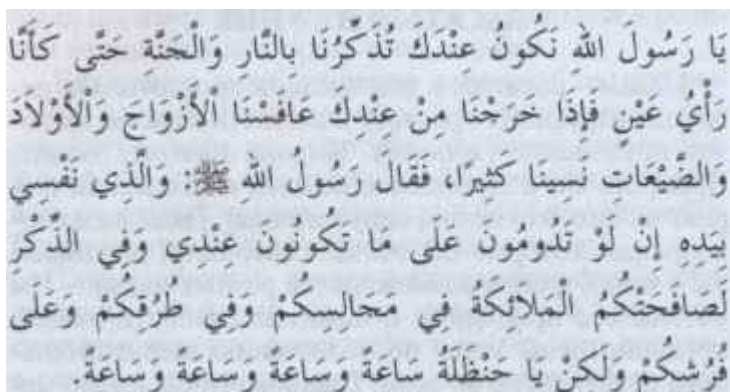 يَا رَسُولَ اللهِ نَكُونُ عِنْدَكَ تُذَكِّرُنَا بِالنَّارِ وَالْجَنَّةِ حَتَّى كَأَنَّا
رَأْيُ عَيْنٍ فَإِذَا خَرَجْنَا مِنْ عِنْدِكَ عَافَسْنَا الْأَزْوَاجَ وَالْأَوْلَادَ
وَالضَّيْعَاتِ نَسِينَا كَثِيرًا، فَقَالَ رَسُولُ اللهِ ﷺ: وَالَّذِي نَفْسِي
بِيَدِهِ إِنْ لَوْ تَدُومُونَ عَلَى مَا تَكُونُونَ عِنْدِي وَفِي الذِّكْرِ
لَصَافَحَتْكُمُ الْمَلَائِكَةُ فِي مَجَالِسِكُمْ وَفِي طُرُقِكُمْ وَعَلَى
فُرُشِكُمْ وَلَكِنْ يَا حَنْظَلَةُ سَاعَةً وَسَاعَةً وَسَاعَةً وَسَاعَةً.